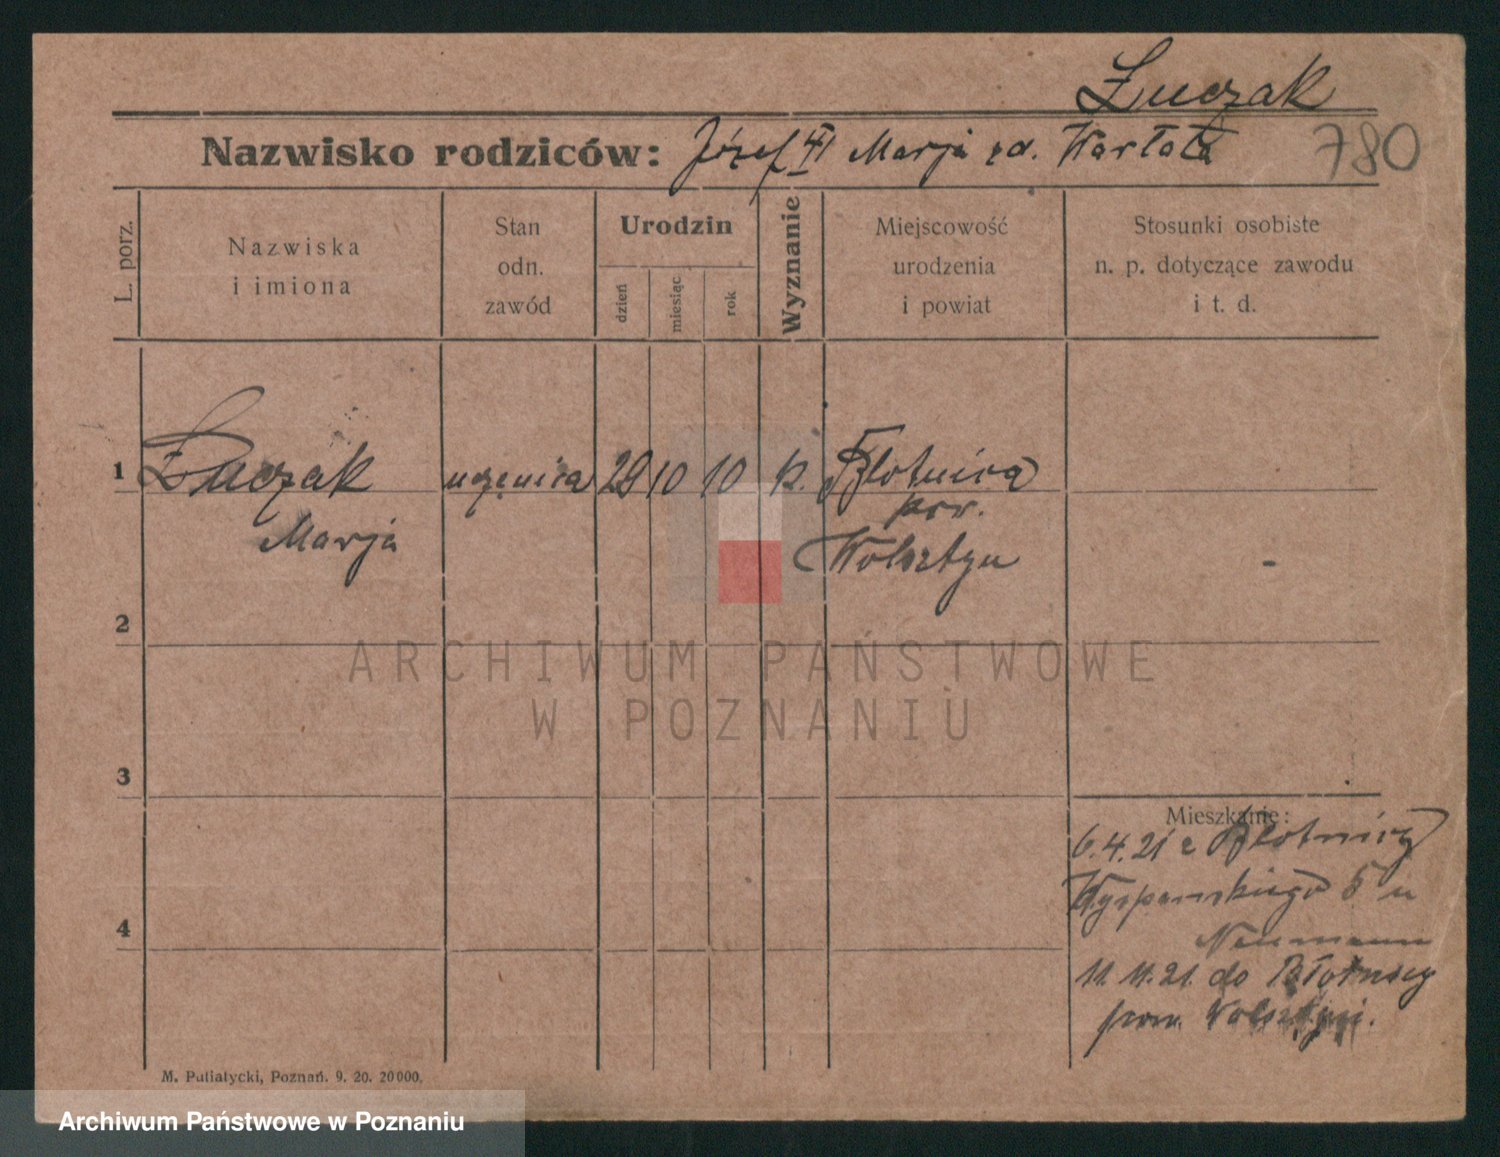 Łuczak
Nazwisko rodziców: Józef Marja zd. Wartała 780
L. porz.
Nazwiska
i imiona
Stan
odn.
zawód
Urodzin
dzień
miesiąc
rok
Wyznanie
Miejscowość
urodzenia
i powiat
Stosunki osobiste
n. p. dotyczące zawodu
i t. d.
1 Łuczak uczenica 29 10 10 k. Błotnica
pow.
Marja Wolsztyn
2
3
4
Mieszkanie:
6.4.21 z Błotnicy
Wyspiańskiego 5 u
Neumann
11.11.21. do Błotnicy
pow. Wolsztyn.
M. Putiatycki, Poznań. 9. 20. 20000.
ARCHIWUM PAŃSTWOWE
W POZNANIU
Archiwum Państwowe w Poznaniu